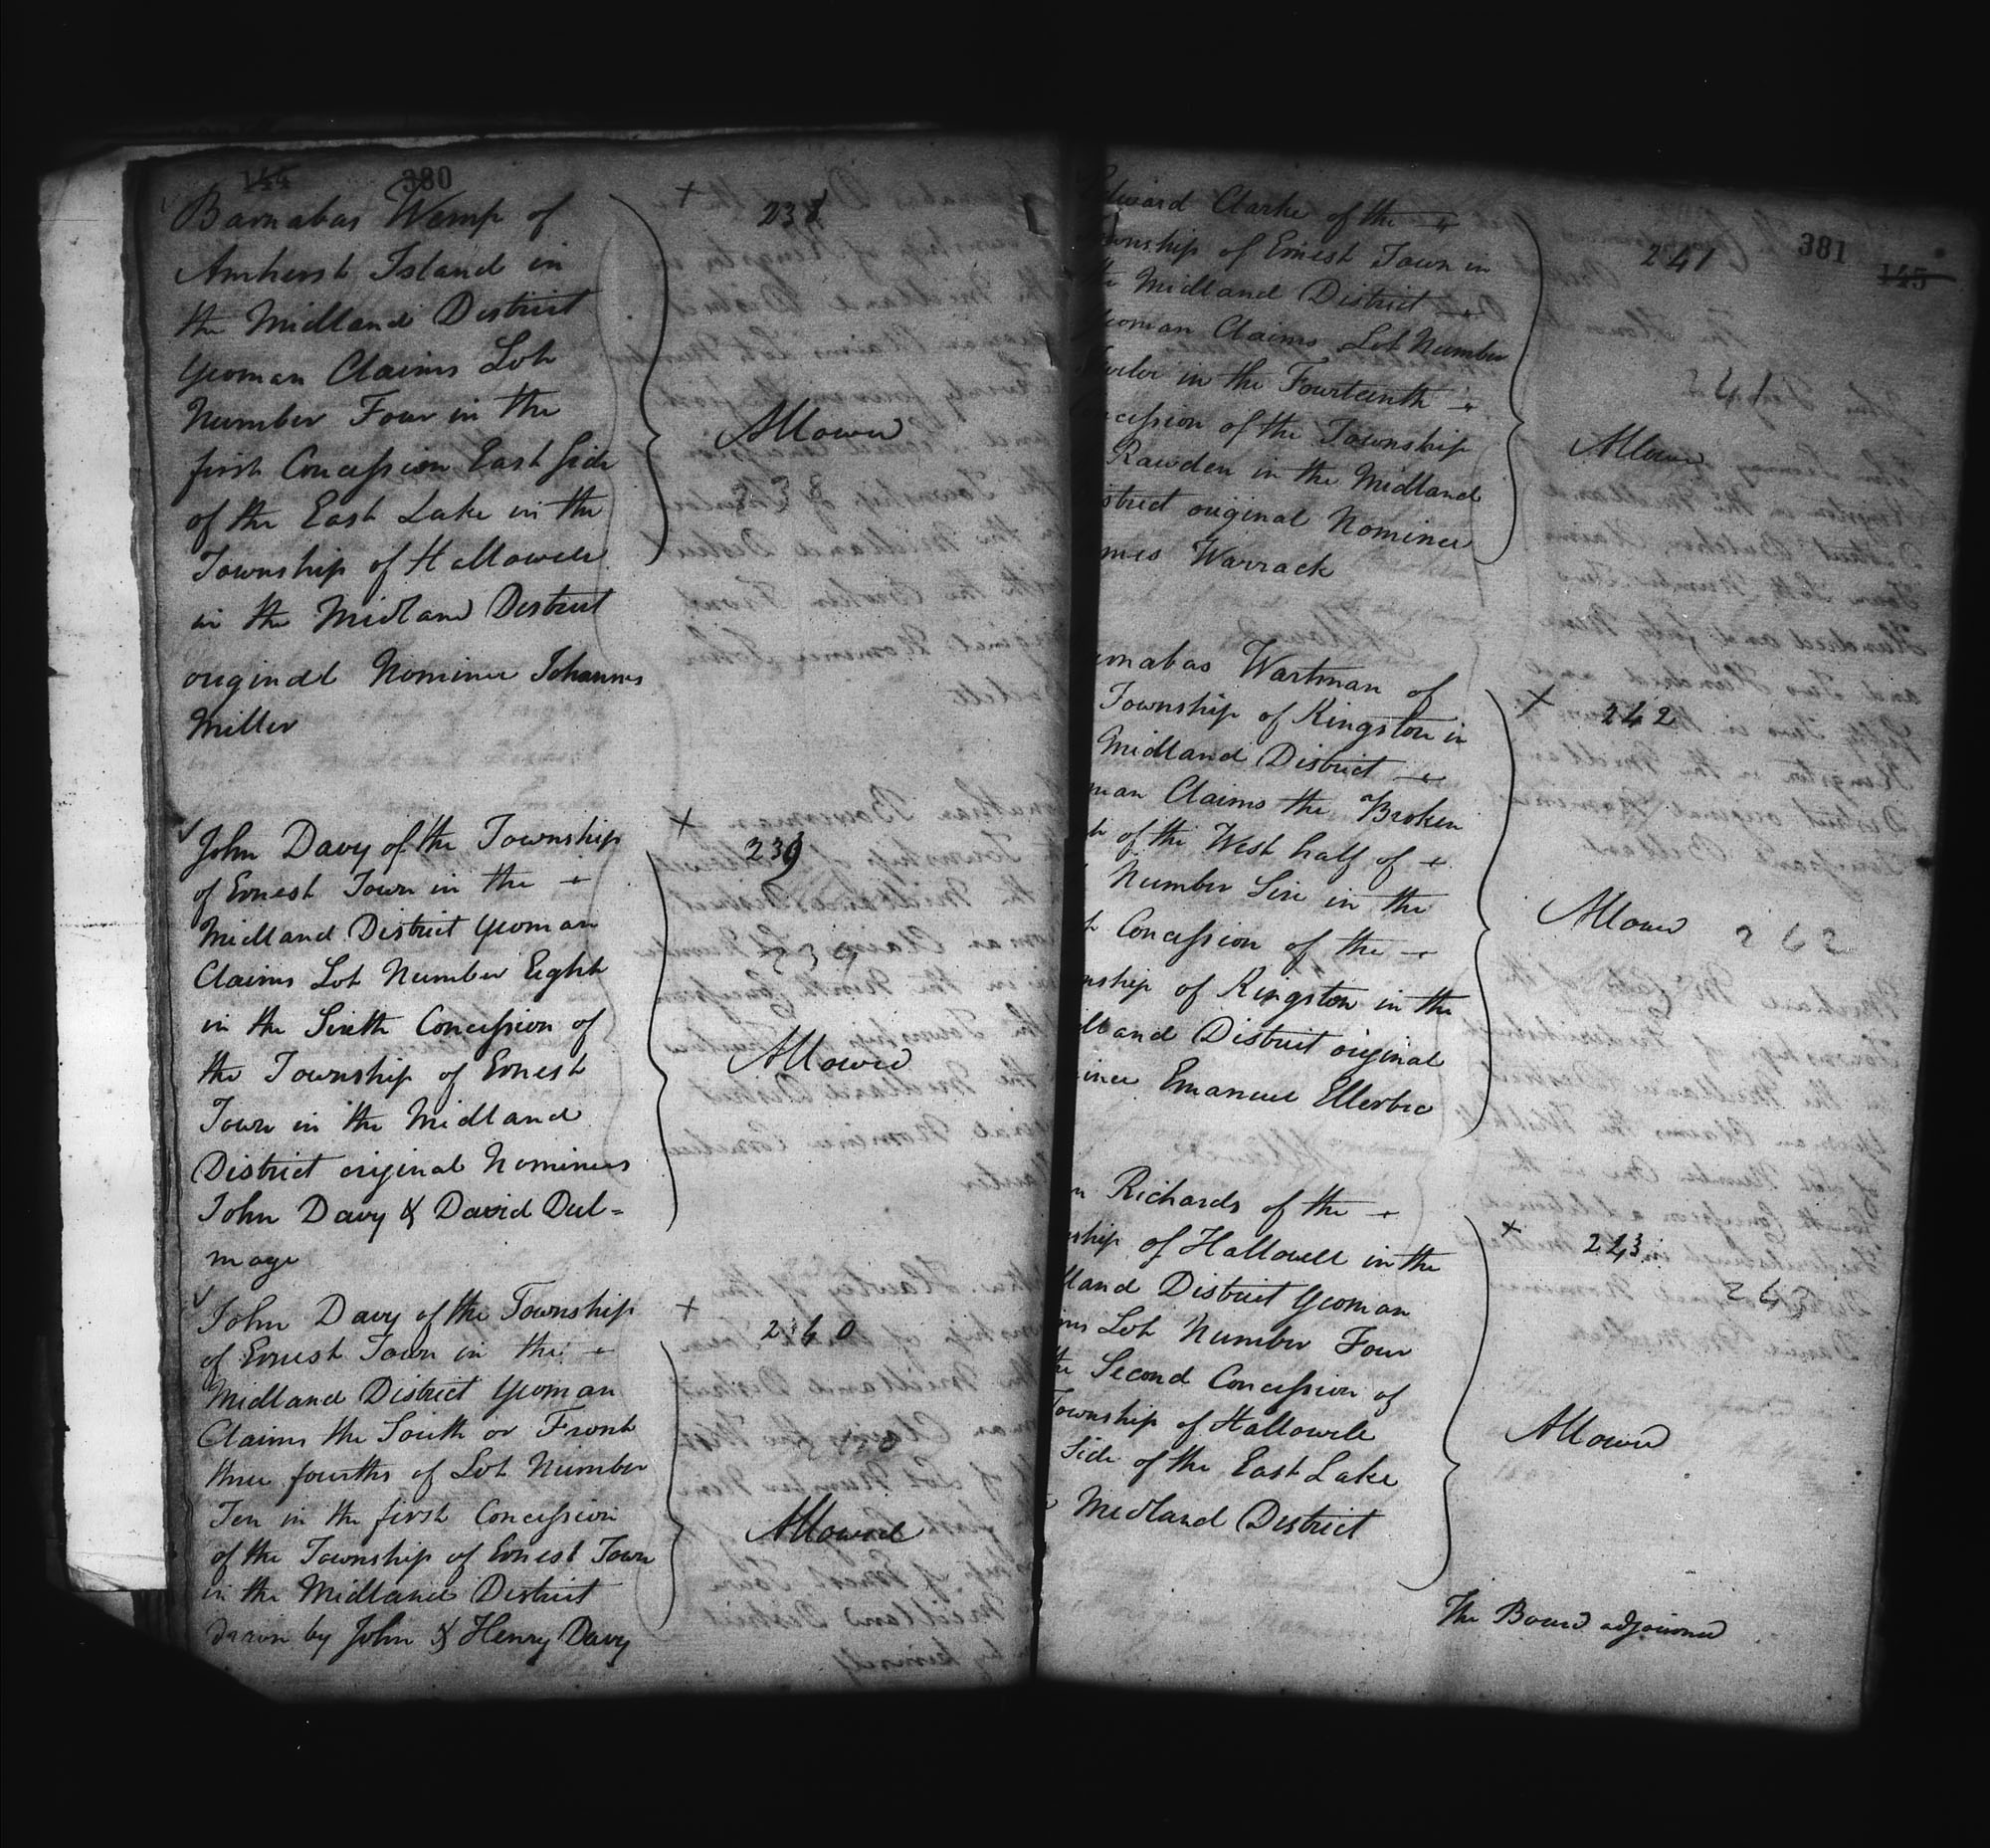 144 380
Barnabas Wemp of
Amherst Island in
the Midland District
Yeoman Claims Lot
Number Four in the
first Concession East Side
of the East Lake in the
Township of Hallowell
in the Midland District
original Nominee Johannes
Miller
+ 238
Allowed
John Davy of the Township
of Ernest Town in the
Midland District Yeoman
Claims Lot Number Eight
in the Sixth Concession of
the Township of Ernest
Town in the Midland
District original Nominees
John Davy & David Dul=
mage
+ 239
239
Allowed
John Davy of the Township
of Ernest Town in the
Midland District Yeoman
Claims the South or Front
three fourths of Lot Number
Ten in the first Concession
of the Township of Ernest Town
in the Midland District
drawn by John & Henry Davy
+ 240
Allowed
381
145
Edward Clarke of the
Township of Ernest Town in
the Midland District
Yeoman Claims Lot Number
Twelve in the Fourteenth
cession of the Township
Rawden in the Midland
strict original Nominee
mes Warrack
241
241
Allowed
rnabas Wartman of
Township of Kingston in
Midland District
man Claims the Broken
of the West half of
Number Six in the
Concession of the
nship of Kingston in the
lland District original
inee Emanuel Ellerbec
+ 242
Allowed 242
n Richards of the
ship of Hallowell in the
lland District Yeoman
ims Lot Number Four
the Second Concession of
Township of Hallowell
Side of the East Lake
Midland District
+ 243
243
Allowed
The Board adjourned